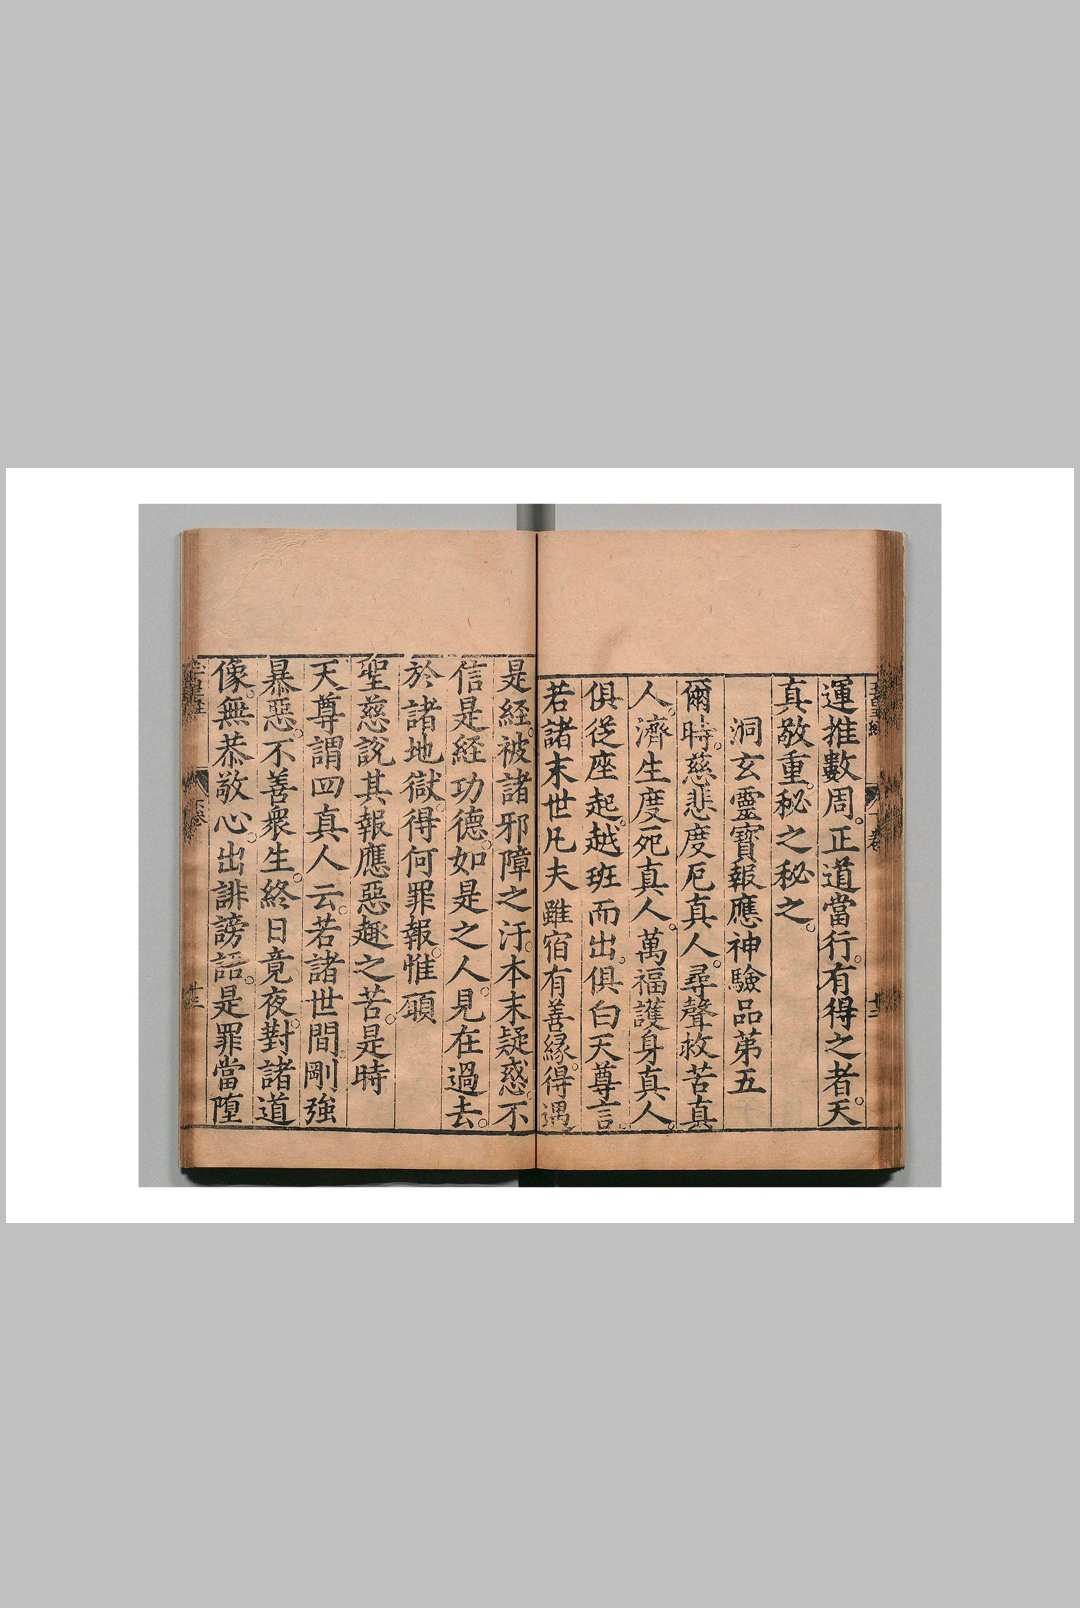 運推數周。正道當行。有得之者。天
真敬重。秘之秘之。
洞玄靈寶報應神驗品第五
爾時。慈悲度厄真人。尋聲救苦真
人。濟生度死真人。萬福護身真人。
俱從座起。越班而出。俱白天尊言。
若諸末世凡夫。雖宿有善緣。得遇
是経。被諸邪障之汙。本末疑惑。不
信是経功德。如是之人。見在過去。
於諸地獄。得何罪報。惟願
聖慈說其報應惡趣之苦。是時
天尊謂四真人云。若諸世間剛強
暴惡。不善衆生。終日竟夜。對諸道
像。無恭敬心。出誹謗語。是罪當墮